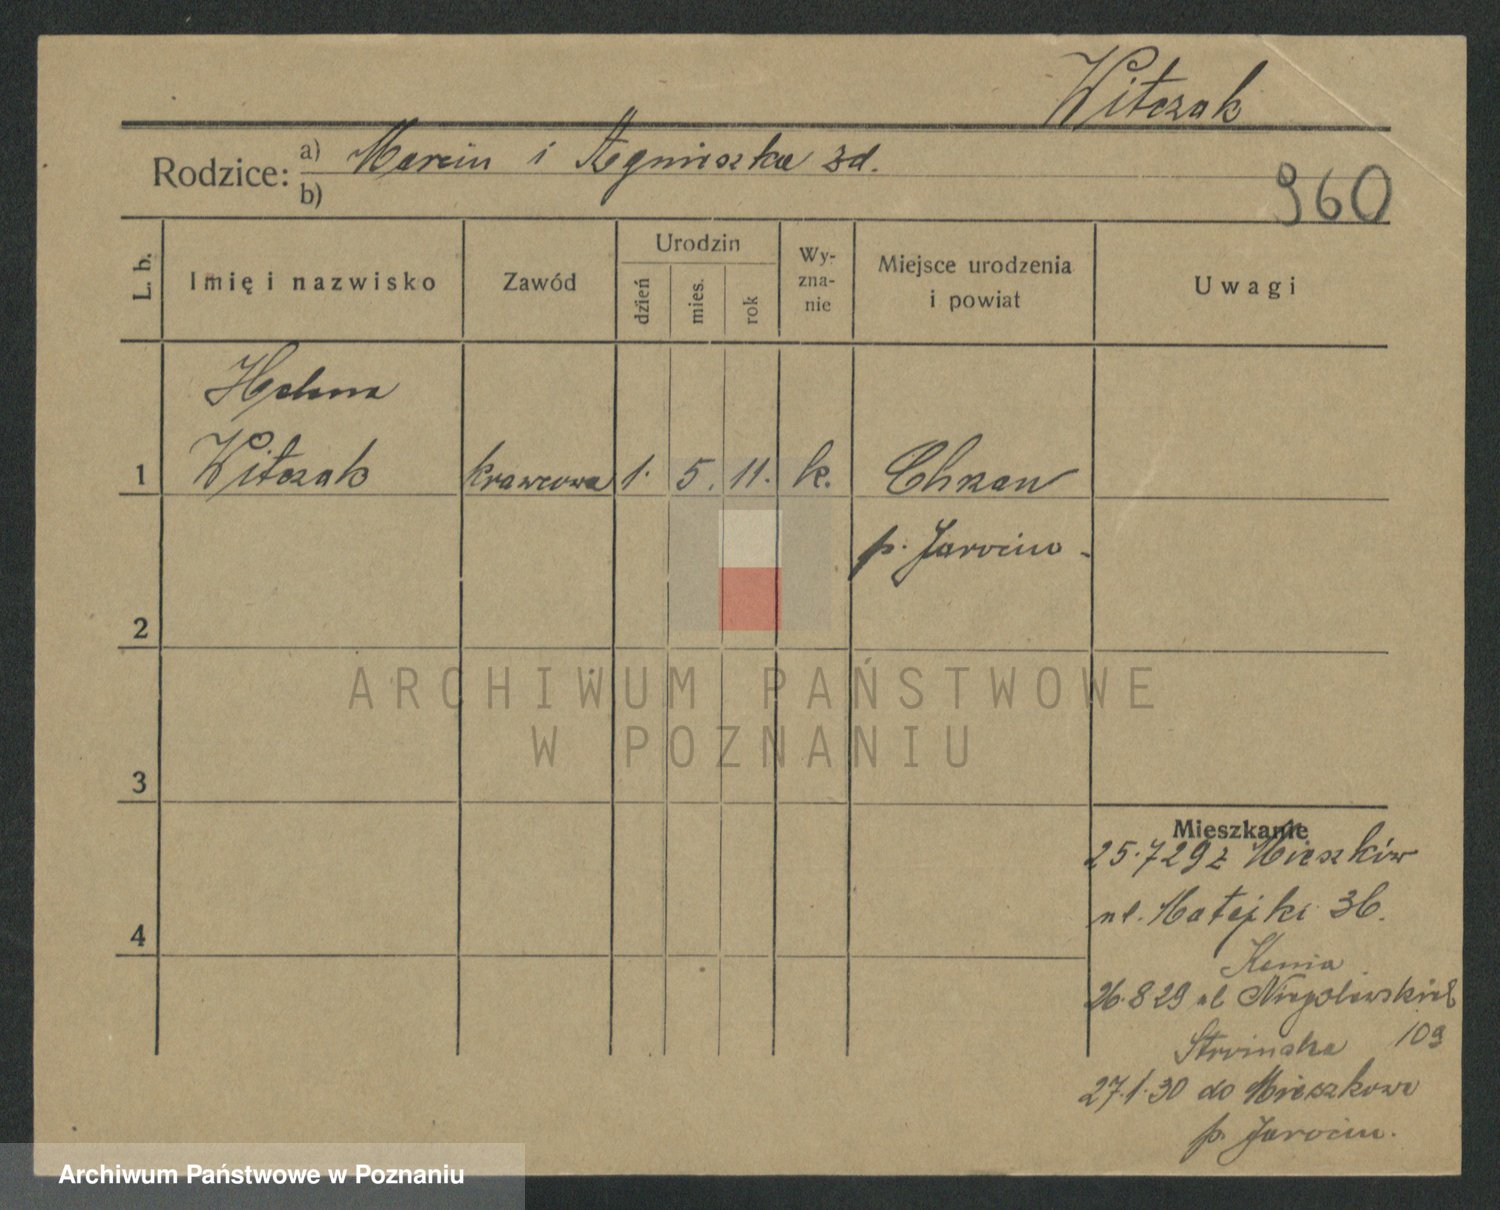 Witczak
Rodzice: a) Marcin i Agnieszka zd.
b)
960
L. b.
Imię i nazwisko
Zawód
Urodzin
dzień
mies.
rok
Wy-
zna-
nie
Miejsce urodzenia
i powiat
Uwagi
Helena
1 Witczak krawcowa 1. 5. 11. k. Chrzan
p. Jarocin
2
ARCHIWUM PAŃSTWOWE
W POZNANIU
3
Mieszkanie
25.7 29 z Mieszków
ul. Matejki 36.
4
Kenia
26.8 29 ul Niegolewskich
Stroinska 10a
27.1.30 do Mieszkowa
p. Jarocin.
Archiwum Państwowe w Poznaniu